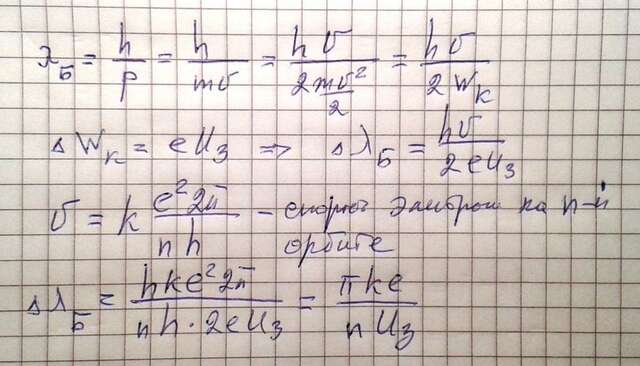 λ_Б = h/p = h/(mυ) = hυ/(2mυ²/2) = hυ/(2W_k)
ΔW_k = eU_з ⇒ Δλ_Б = hυ/(2eU_з)
υ = k e²2π/(nh) – скорость электрона на n-й
орбите
Δλ_Б = hke²2π/(nh·2eU_з) = πke/(nU_з)